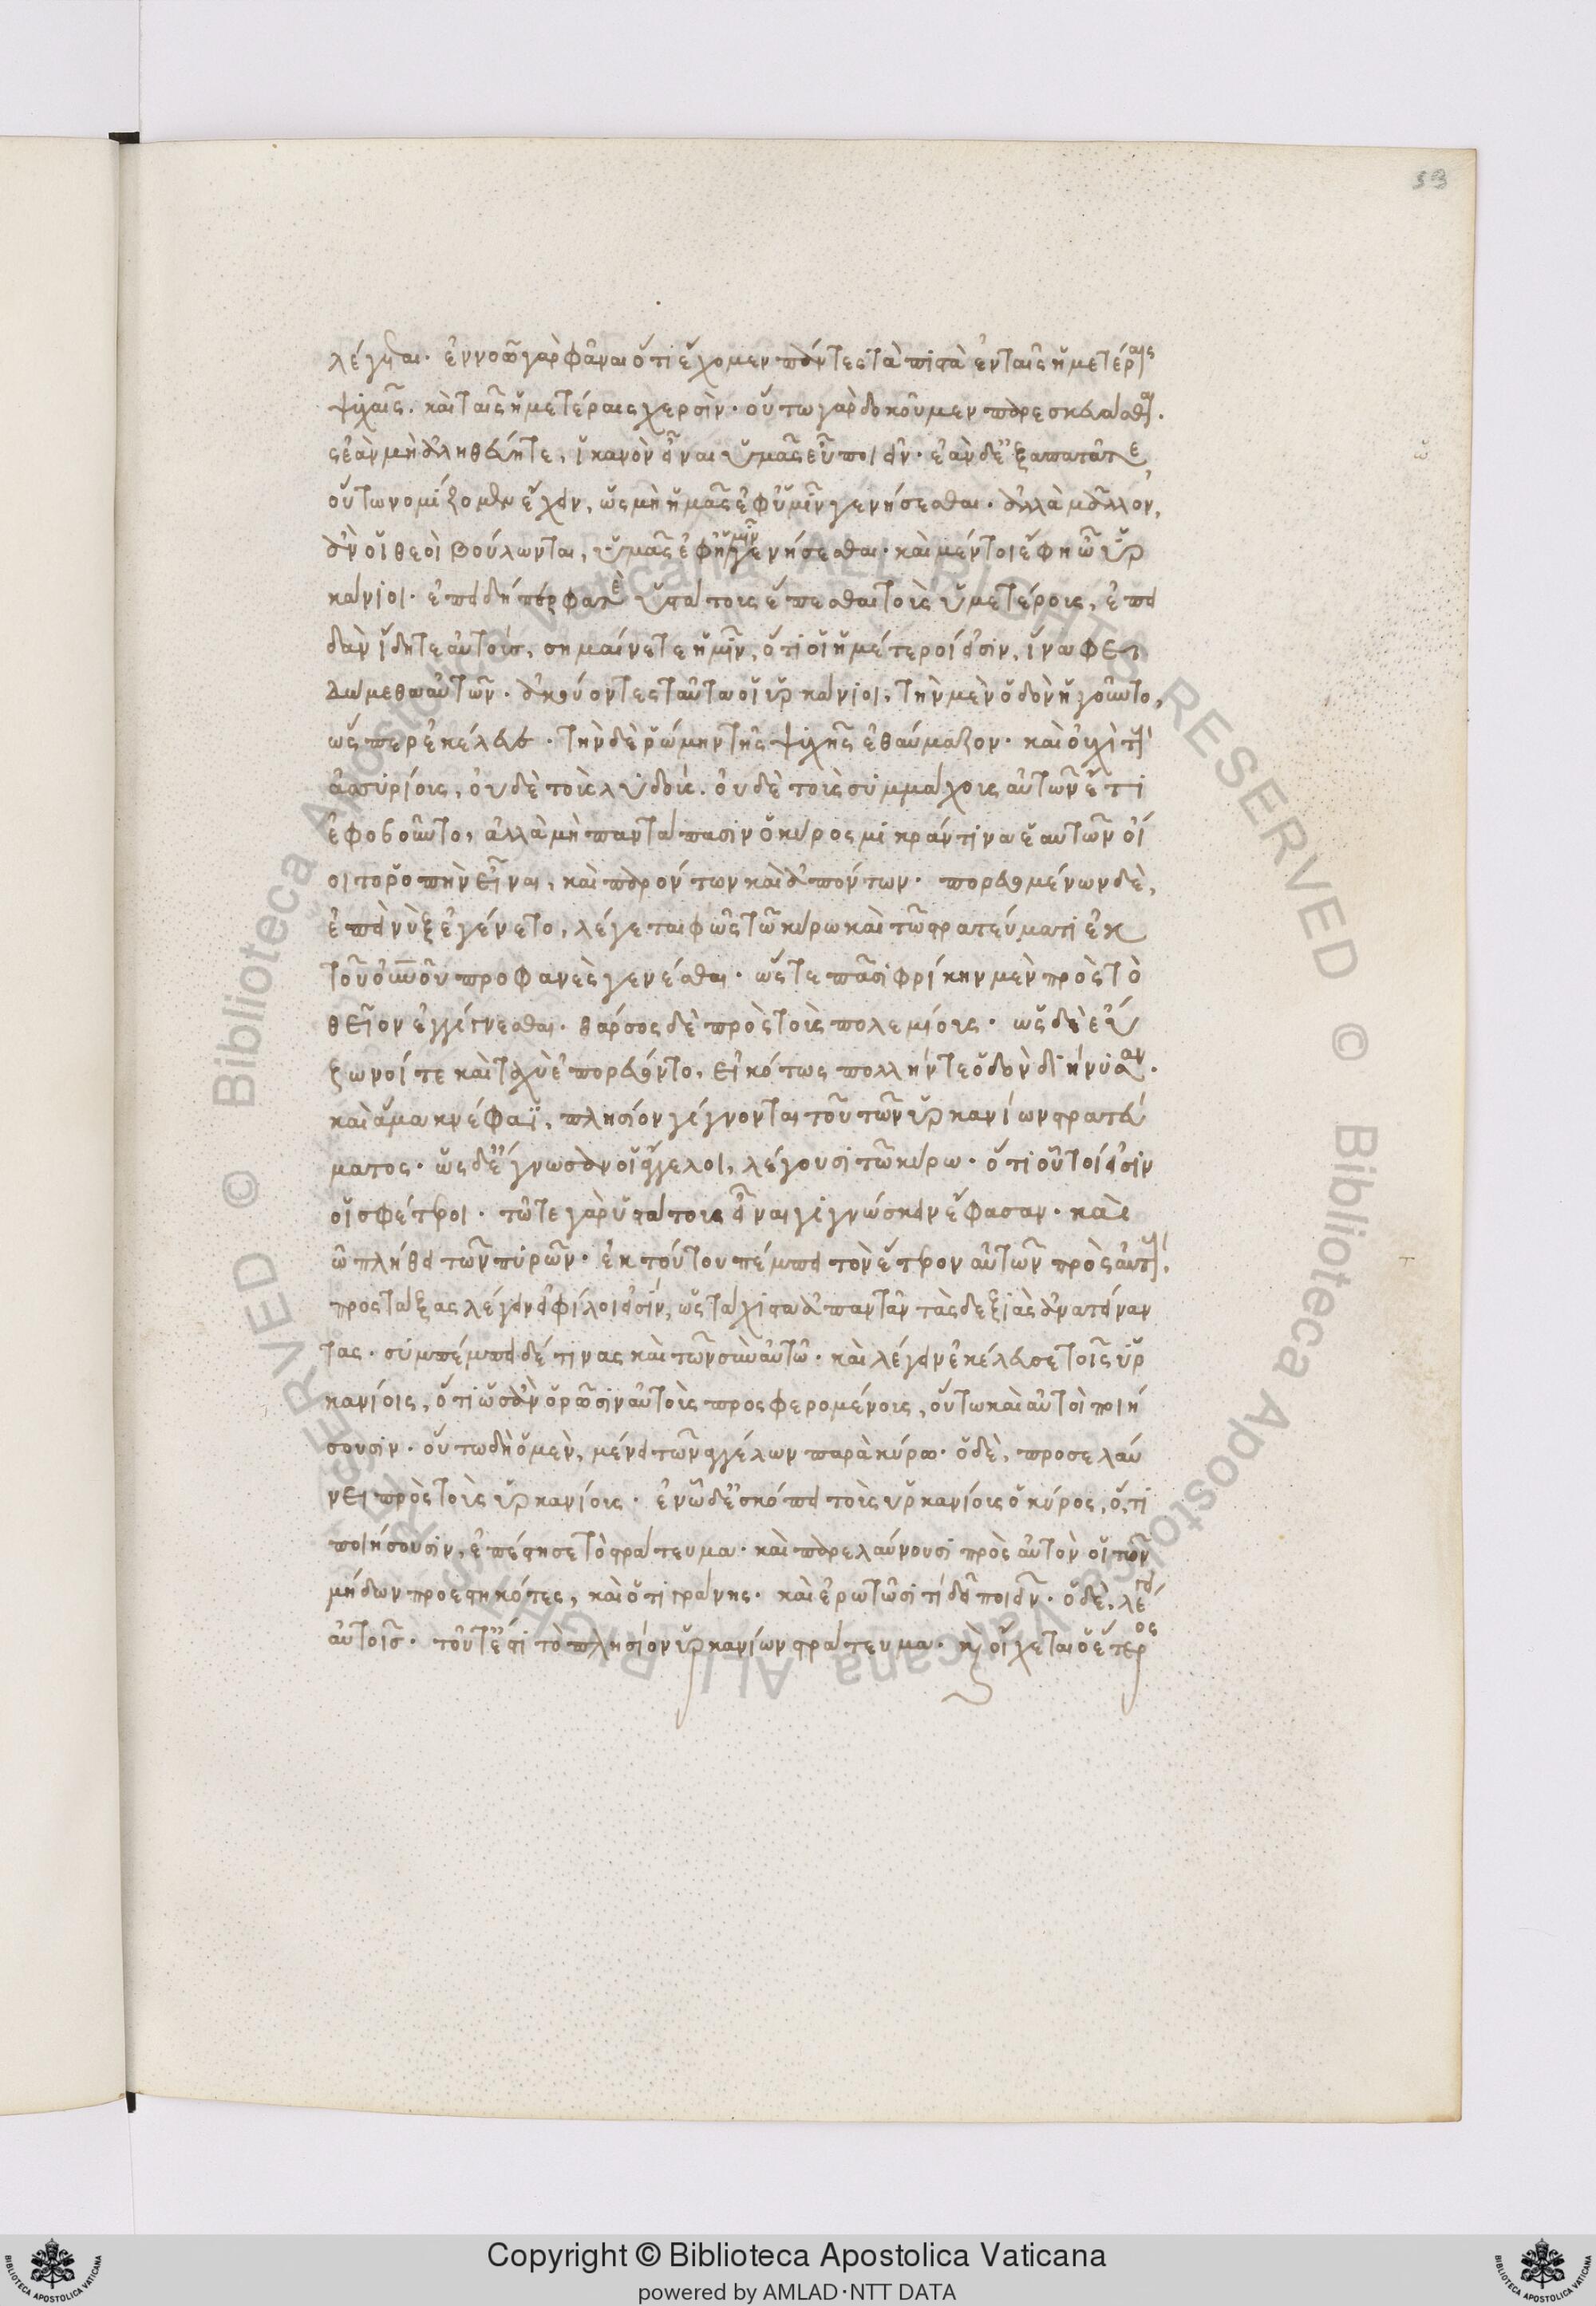 53
λέγεται. ἐννοῶ γὰρ φάναι ὅτι ἔχομεν πάντες τὰ πιστὰ ἐν ταῖς ἡμετέραις
ψυχαῖς. καὶ ταῖς ἡμετέραις χερσὶν. οὕτω γὰρ δοκοῦμεν παρεσκευάσθαι.
ὡς ἐὰν μὴ ἀληθεύητε, ἱκανὸν εἶναι ὑμᾶς εὖ ποιεῖν. ἐὰν δ' ἐξαπατᾶτε
οὕτω νομίζομεν ἔχειν, ὡς μὴ ἡμᾶς ἐφ' ὑμῖν γενήσεσθαι. ἀλλὰ μᾶλλον,
ἂν οἱ θεοὶ βούλωνται, ὑμᾶς ἐφ' ἡμῖν γενήσεσθαι. καὶ μέντοι ἔφη ὦ ὑρ
κάνιοι. ἐπειδή περ φατὲ ὑστάτους ἕπεσθαι τοὺς ὑμετέρους, ἐπει
δὰν ἴδητε αὐτούς, σημαίνετε ἡμῖν, ὅτι οἱ ἡμέτεροί εἰσιν, ἵνα φει
δώμεθα αὐτῶν. ἀκούοντες ταῦτα οἱ ὑρκάνιοι, τὴν μὲν ὁδὸν ἡγοῦντο,
ὥς περ ἐκέλευε. τὴν δὲ ῥώμην τῆς ψυχῆς ἐθαύμαζον. καὶ οὐχὶ τοὺς
ἀσσυρίους, οὐδὲ τοὺς λυδοὺς. οὐδὲ τοὺς συμμάχους αὐτῶν ἔτι
ἐφοβοῦντο, ἀλλὰ μὴ παντάπασιν ὁ κῦρος μικράν τινα ἑαυτῶν οἴ
οιτο ῥοπὴν εἶναι, καὶ παρόντων καὶ ἀπόντων. πορευομένων δὲ,
ἐπεὶ νὺξ ἐγένετο, λέγεται φῶς τῶ κύρω καὶ τῶ στρατεύματι ἐκ
τοῦ οὐνοῦ προφανὲς γενέσθαι. ὥς τε πᾶσι φρίκην μὲν πρὸς τὸ
θεῖον ἐγγίγνεσθαι. θάρσος δὲ πρὸς τοὺς πολεμίους. ὡς δὲ εὔ
ζωνοί τε καὶ ταχὺ ἐπορεύοντο, εἰκότως πολλήν τε ὁδὸν διήνυσαν.
καὶ ἅμα κνέφαϊ, πλησίον γίγνονται τοῦ τῶν ὑρκανίων στρατεύ
ματος. ὡς δ' ἔγνωσαν οἱ ἄγγελοι, λέγουσι τῶ κύρω. ὅτι οὗτοί εἰσιν
οἱ σφέτεροι. τῶ τε γὰρ ὑστάτους εἶναι γιγνώσκειν ἔφασαν. καὶ
ὦ πλήθει τῶν πυρῶν. ἐκ τούτου πέμπει τὸν ἕτερον αὐτῶν πρὸς αὐτούς,
προςτάξας λέγειν εἰ φίλοι εἰσίν, ὡς τάχιστα ἀπαντᾶν τὰς δεξιὰς ἀνατείναν
τας. συμπέμπει δέ τινας καὶ τῶν σὺν αὑτῶ. καὶ λέγειν ἐκέλευσε τοῖς ὑρ
κανίοις, ὅτι ὡς ἂν ὁρῶσιν αὐτοὺς προςφερομένους, οὕτω καὶ αὐτοὶ ποιή
σουσιν. οὕτω δὴ ὁ μὲν, μένει τῶν ἀγγέλων παρὰ κύρω. ὁ δὲ, προσελαύ
νει πρὸς τοὺς ὑρκανίους. ἐν ὧ δ' ἐσκόπει τοὺς ὑρκανίους ὁ κύρος, ὅ,τι
ποιήσουσιν, ἐπέστησε τὸ στράτευμα. καὶ παρελαύνουσι πρὸς αὐτὸν οἱ τῶν
μήδων προεστηκότες, καὶ ὁ τιγράνης. καὶ ἐρωτῶσι τί δεῖ ποιεῖν. ὁ δὲ, λέγει
αὐτοῖς. τοῦτ' ἔστι τὸ πλησίον ὑρκανίων στράτευμα. καὶ οἴχεται ὁ ἕτερος
Copyright © Biblioteca Apostolica Vaticana
powered by AMLAD·NTT DATA